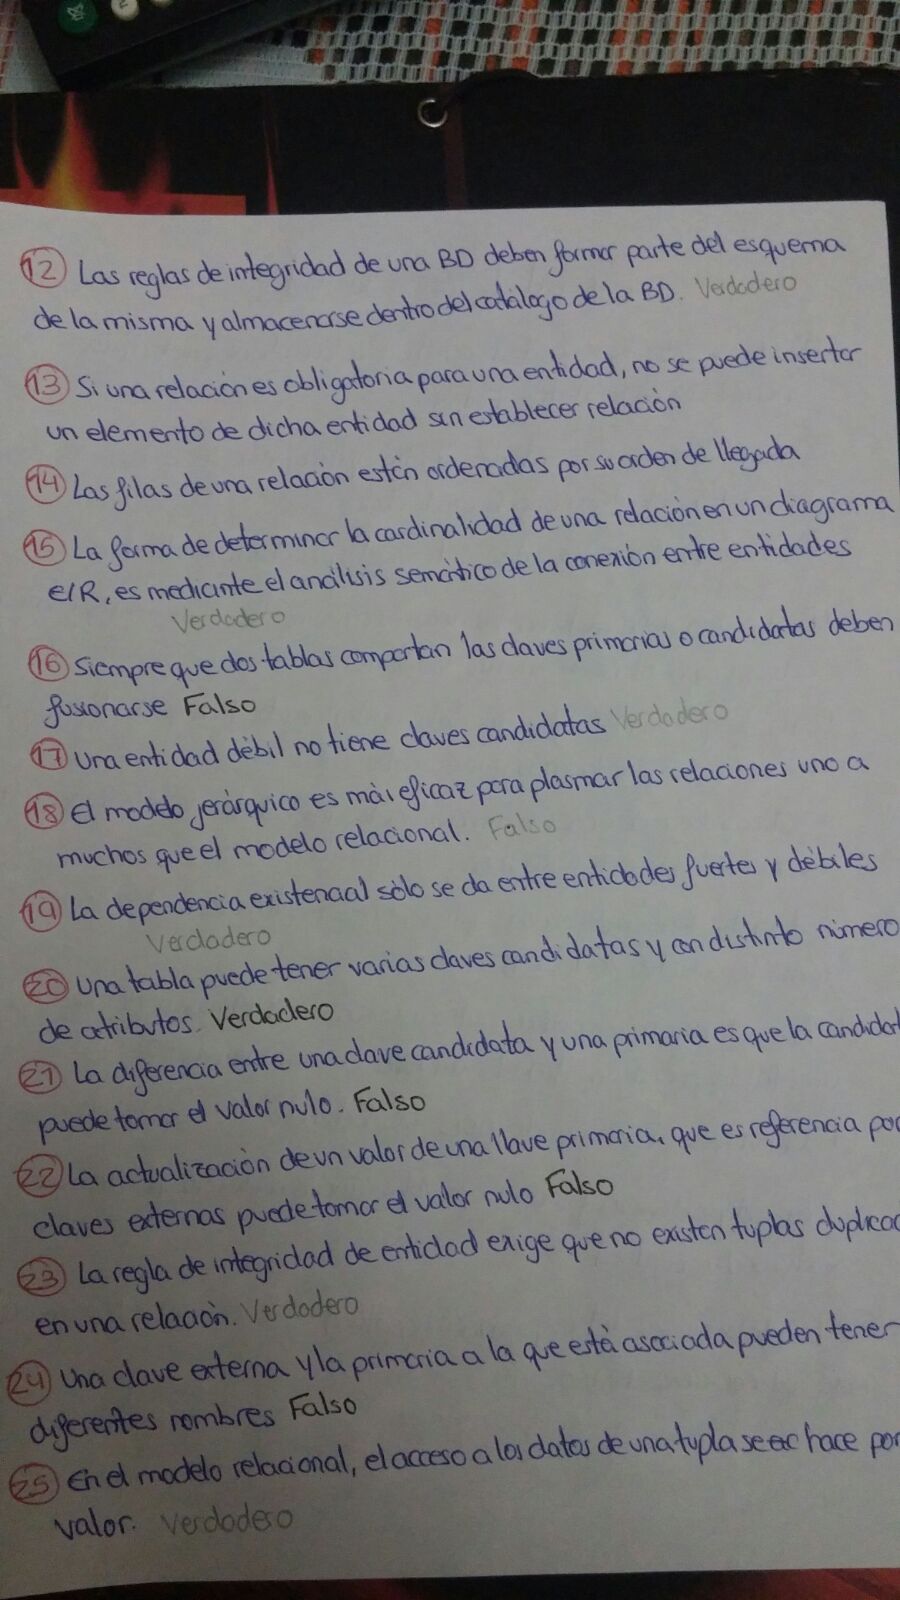 12 Las reglas de integridad de una BD deben formar parte del esquema
de la misma y almacenarse dentro del catálogo de la BD. Verdadero
13 Si una relación es obligatoria para una entidad, no se puede insertar
un elemento de dicha entidad sin establecer relación
14 Las filas de una relación están ordenadas por su orden de llegada
15 La forma de determinar la cardinalidad de una relación en un diagrama
E/R, es mediante el análisis semántico de la conexión entre entidades
Verdadero
16 Siempre que dos tablas compartan las claves primarias o candidatas deben
fusionarse Falso
17 Una entidad débil no tiene claves candidatas Verdadero
18 El modelo jerárquico es más eficaz para plasmar las relaciones uno a
muchos que el modelo relacional. Falso
19 La dependencia existencial sólo se da entre entidades fuertes y débiles
Verdadero
20 Una tabla puede tener varias claves candidatas y con distinto número
de atributos. Verdadero
21 La diferencia entre una clave candidata y una primaria es que la candidat
puede tomar el valor nulo. Falso
22 La actualización de un valor de una llave primaria, que es referencia por
claves externas puede tomar el valor nulo Falso
23 La regla de integridad de entidad exige que no existan tuplas duplicad
en una relación. Verdadero
24 Una clave externa y la primaria a la que está asociada pueden tener
diferentes nombres Falso
25 En el modelo relacional, el acceso a los datos de una tupla se hace por
valor. Verdadero